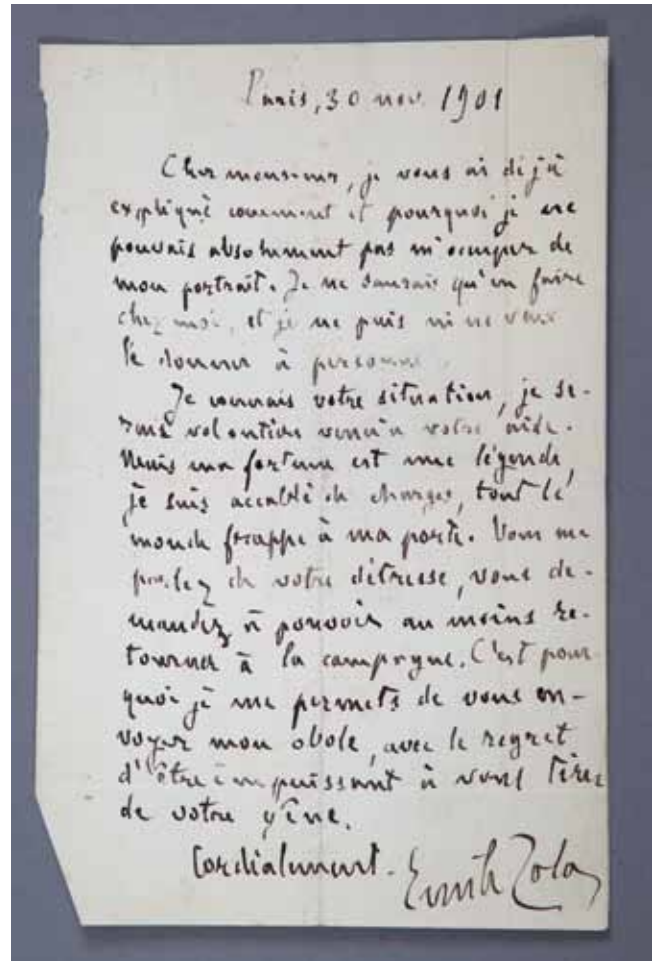 Paris, 30 nov. 1901
Cher monsieur, je vous ai déjà
expliqué comment et pourquoi je ne
pouvais absolument pas m'occuper de
mon portrait. Je ne saurais qu'en faire
chez moi, et je ne puis ni ne veux
le donner à personne.
Je connais votre situation, je se-
rais volontiers venu à votre aide.
Mais ma fortune est une légende,
je suis accablé de charges, tout le
monde frappe à ma porte. Vous me
parlez de votre détresse, vous de-
mandez à pouvoir au moins re-
tourner à la campagne. C'est pour-
quoi je me permets de vous en-
voyer mon obole, avec le regret
d'être impuissant à vous tirer
de votre gêne.
Cordialement.
Emile Zola